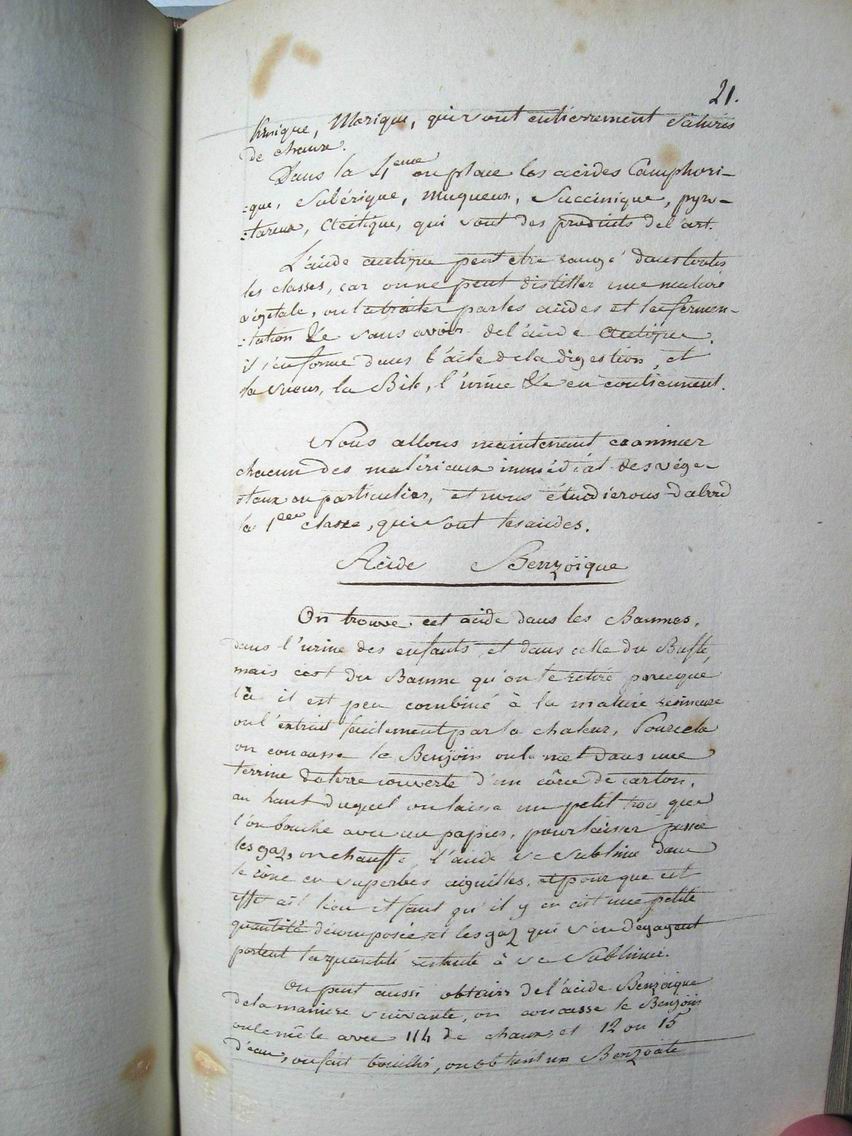 21.
Kinique, Morique, qui sont entièrement saturés
de chaux.
Dans la 4eme on place les acides Camphori-
-que, Subérique, Muqueux, Succinique, pyro-
-tareux, Acétique, qui sont des produits de l'art.
L'acide acétique peut etre rangé dans toutes
les classes, car on ne peut distiller une matière
végétale, ou la traiter par les acides et la fermen-
-tation &c sans avoir de l'acide acétique.
il s'en forme dans l'acte de la digestion, et
la sueur, la Bile, l'urine &c en contiennent.
Nous allons maintenant examiner
chacun des matériaux immédiat des végé-
-taux en particulier, et nous étudierons d'abord
la 1ere classe, qui sont les acides.
Acide Benzoïque
On trouve cet acide dans les Baumes,
dans l'urine des enfants et dans celle du Bufle,
mais c'est du Baume qu'on le retire parceque
là il est peu combiné à la matière resineuse
on l'extrait facilement par la chaleur, Pour cela
on concasse le Benjoin on le met dans une
terrine de terre couverte d'un cône de carton,
au haut duquel on laisse un petit trou que
l'on bouche avec un papier, pour laisser passer
les gaz, on chauffe, l'acide se sublime dans
le cône en superbes aiguilles, et pour que cet
effet ait lieu il faut qu'il y en ait une petite
quantité décomposée et les gaz qui s'en dégagent
portent la quantité restante à se Sublimer.
On peut aussi obtenir de l'acide Benzoïque
de la manière suivante, on concasse le Benjoin
on le mêle avec 1/4 de chaux et 12 ou 15
d'eau, on fait bouillir, on obtient un Benzoate